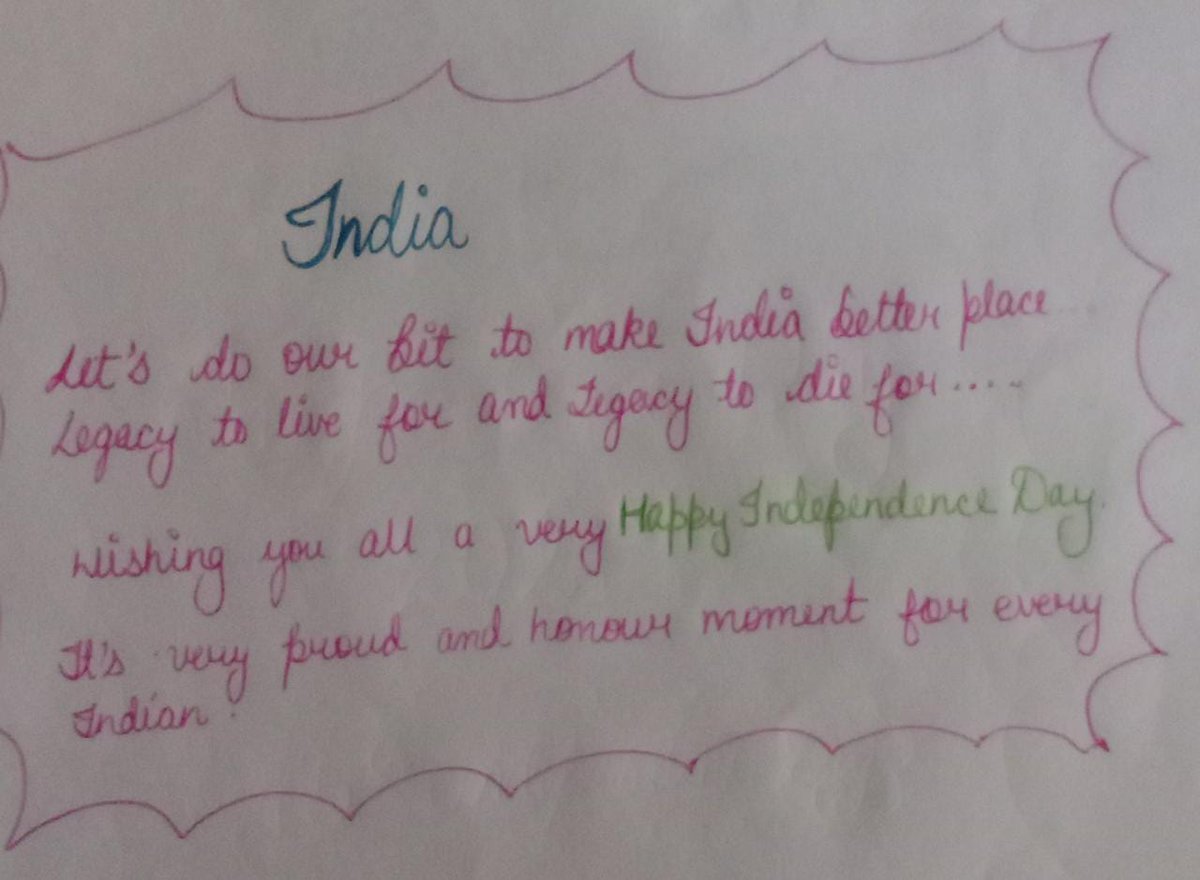 India
Let's do our bit to make India better place
Legacy to live for and Legacy to die for.....
Wishing you all a very Happy Independence Day.
It's very proud and honour moment for every
Indian.